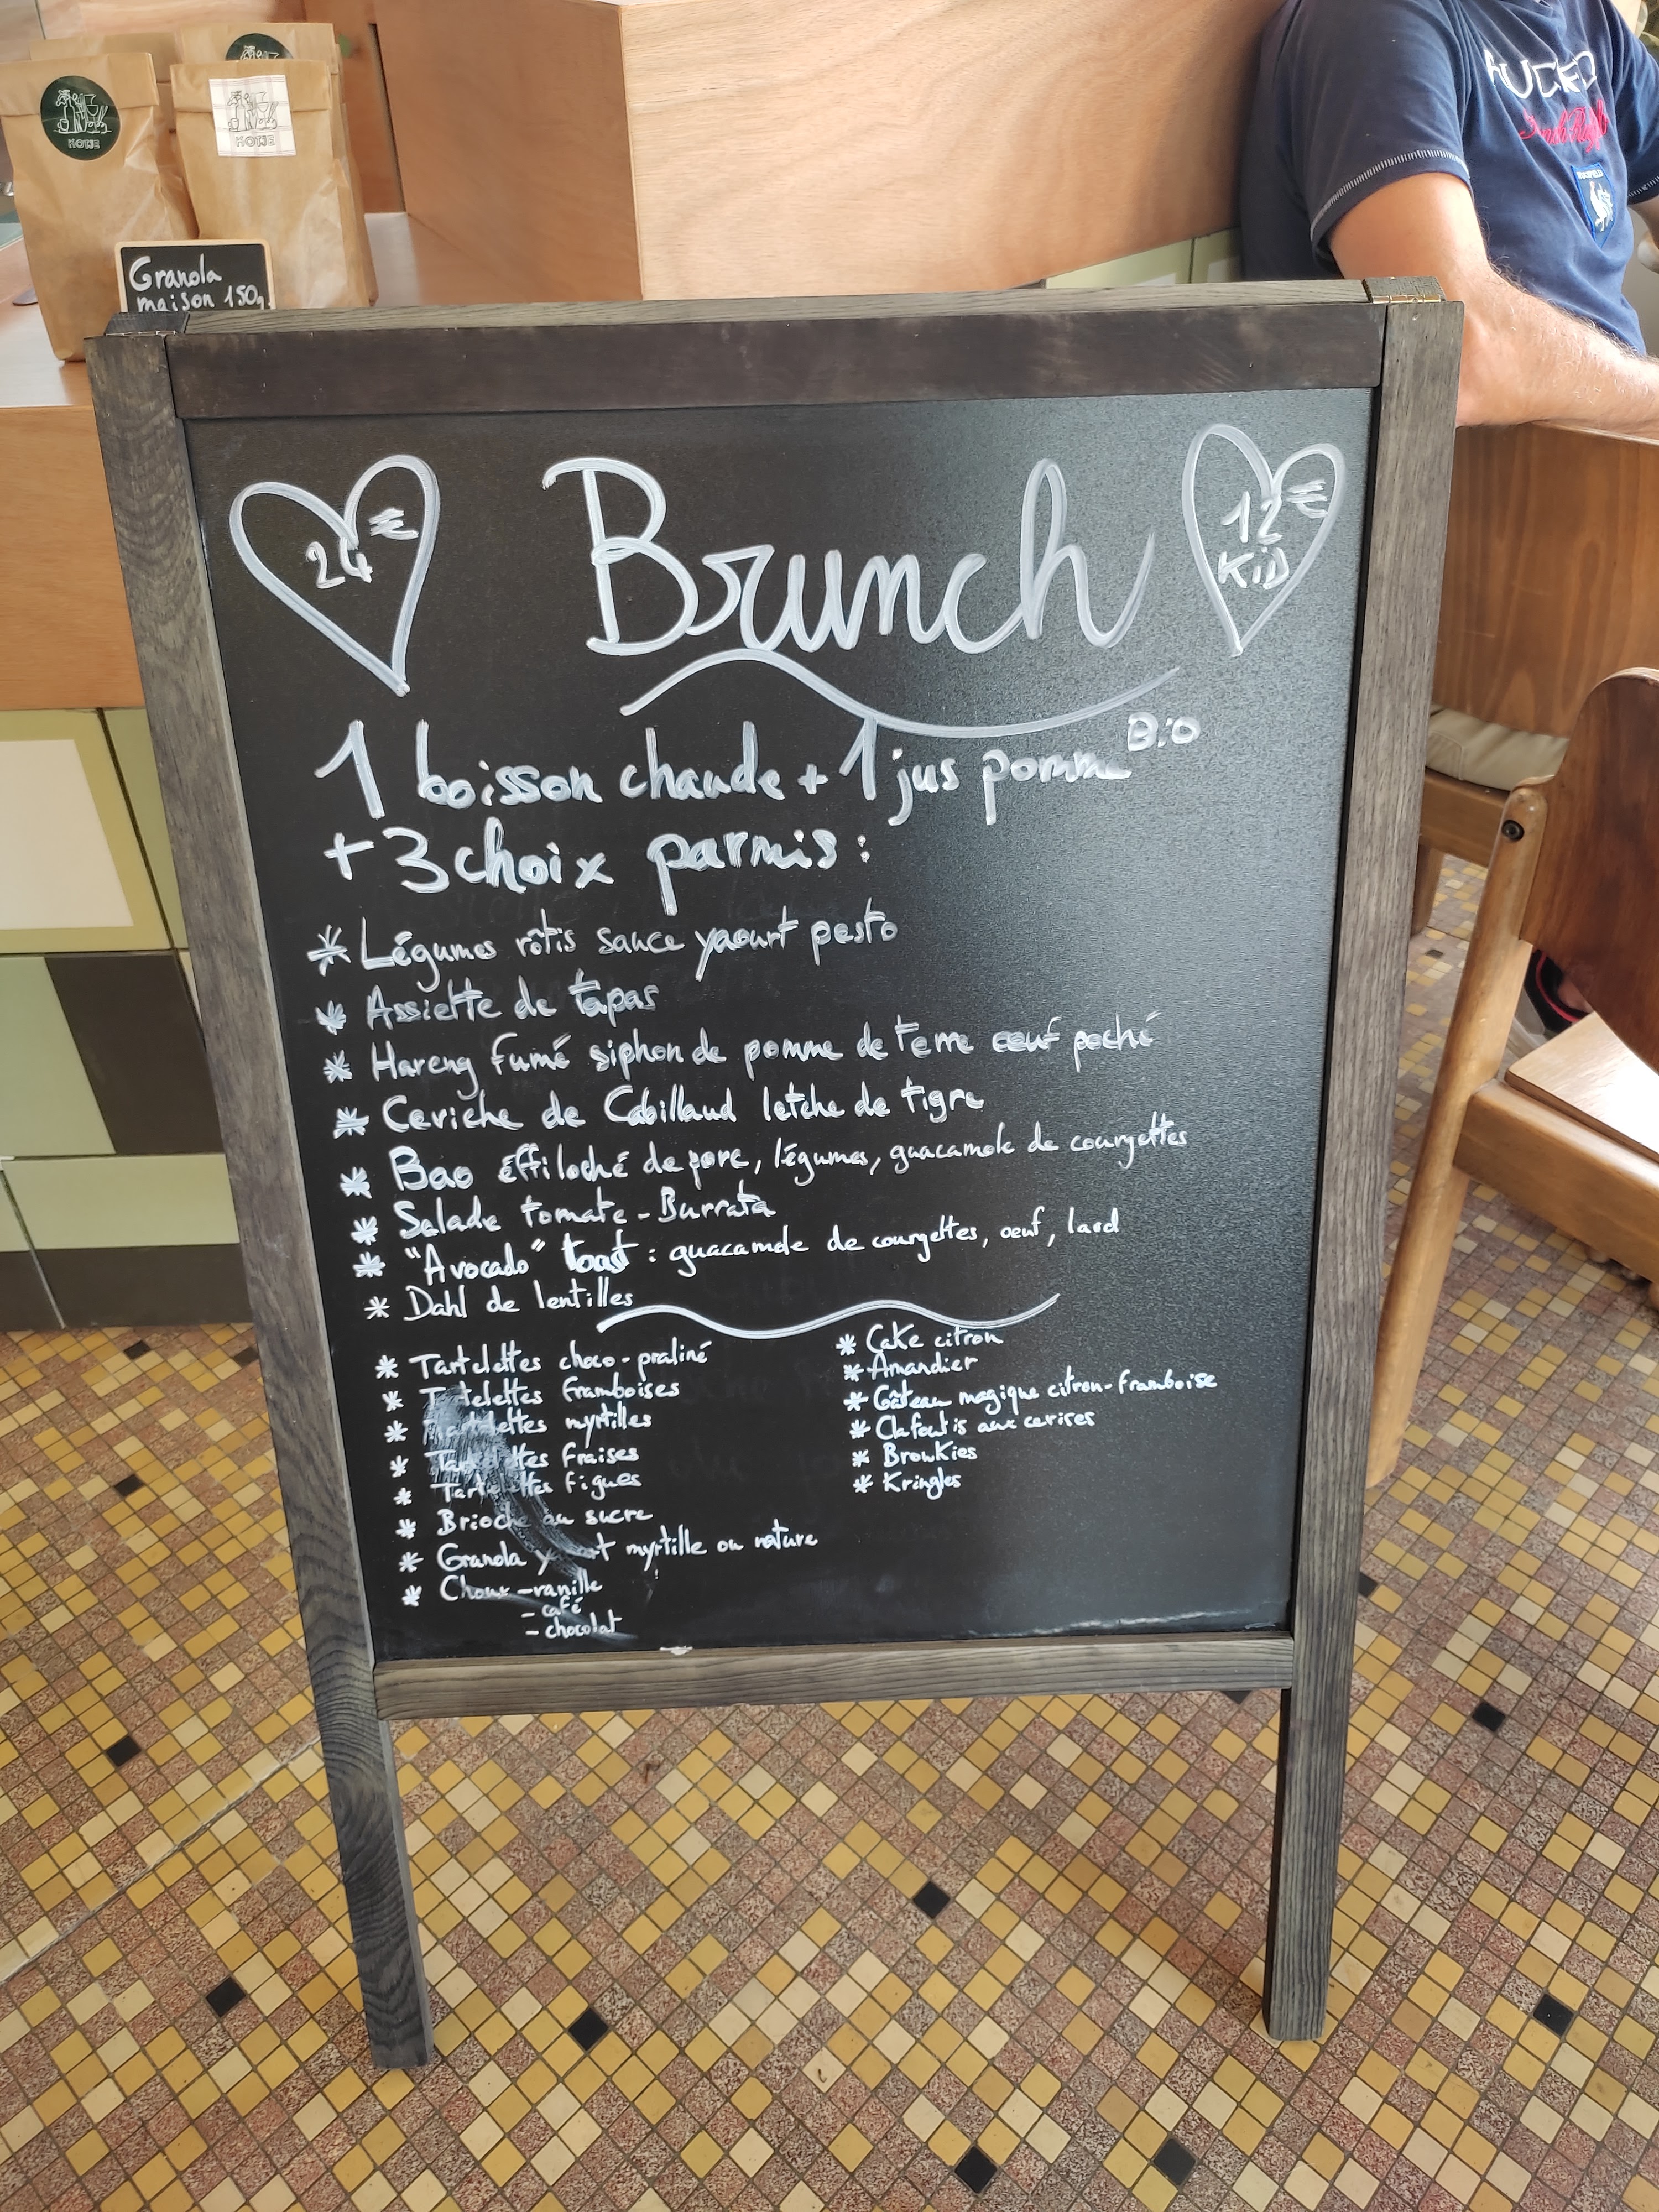 HOTJE
Granola
maison 150g
24€
Brunch
12€
KiD
1 boisson chaude + 1 jus pomme Bio
+ 3 choix parmis :
* Légumes rôtis sauce yaourt pesto
* Assiette de tapas
* Hareng fumé siphon de pomme de terre oeuf poché
* Ceviche de Cabillaud letche de tigre
* Bao éffiloché de porc, légumes, guacamole de courgettes
* Salade tomate - Burrata
* "Avocado" toast : guacamole de courgettes, oeuf, lard
* Dahl de lentilles
* Tartelettes choco-praliné
* Tartelettes framboises
* Tartelettes myrtilles
* Tartelettes fraises
* Tartelettes figues
* Brioche au sucre
* Granola yaourt myrtille ou nature
* Choux - vanille
- café
- chocolat
* Cake citron
* Amandier
* Gâteau magique citron-framboise
* Clafoutis aux cerises
* Browkies
* Kringles